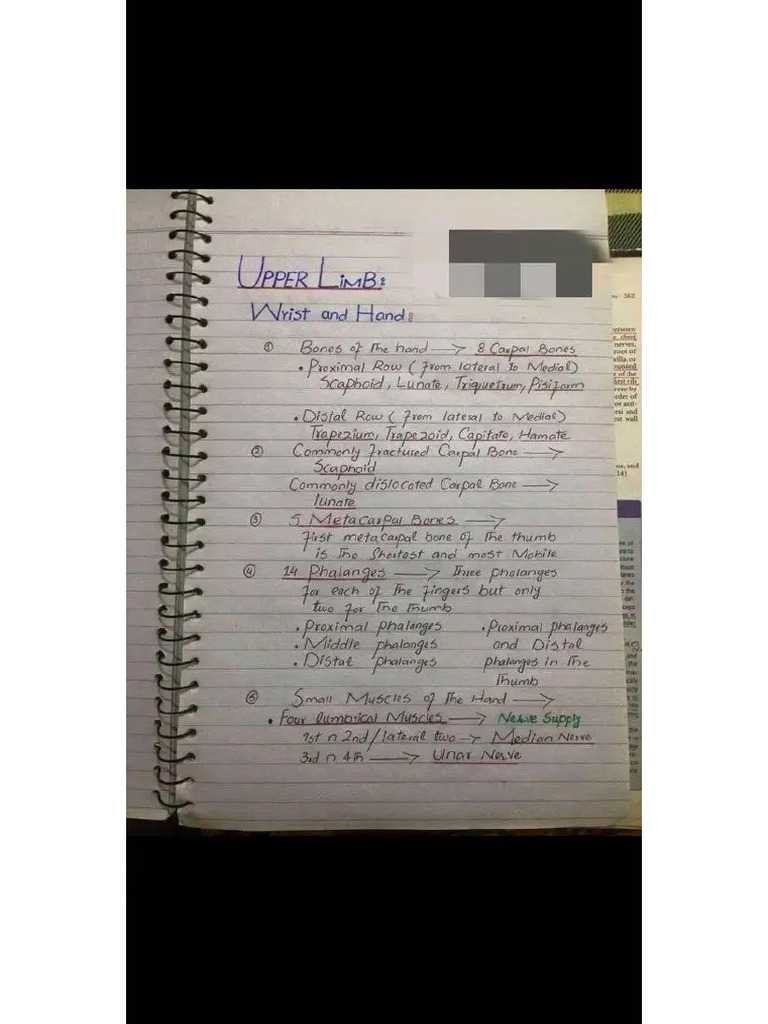 UPPER LIMB:
Wrist and Hand:
① Bones of The hand → 8 Carpal Bones
• Proximal Row (from lateral to Medial)
Scaphoid, Lunate, Triquetrum, Pisiform
• Distal Row (from lateral to Medial)
Trapezium, Trapezoid, Capitate, Hamate
② Commonly fractured Carpal Bone →
Scaphoid
Commonly dislocated Carpal Bone →
lunate
③ 5 Metacarpal Bones →
first metacarpal bone of The thumb
is The Shortest and most Mobile
④ 14 Phalanges → Three phalanges
for each of The fingers but only
two for The Thumb
• Proximal phalanges
• Middle phalanges
• Distal phalanges
• Proximal phalanges
and Distal
phalanges in The
Thumb
⑤ Small Muscles of The Hand →
• Four lumbrical Muscles → Nerve Supply
1st n 2nd/lateral two → Median Nerve
3rd n 4th → Unar Nerve
342
nerves,
root of
first rib
order of
and
14)